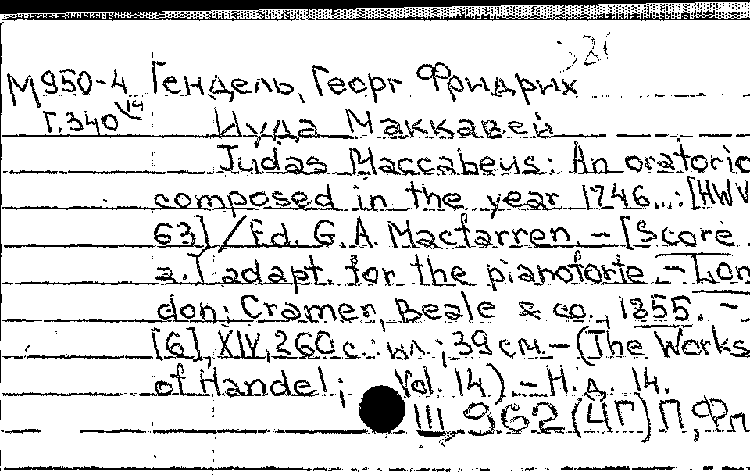 М950-4 Гендель, Георг Фридрих
Г.340 V14 Иуда Маккавей
Judas Maccabeus: An oratorio
composed in the year 1746...: [HWV
63] / Ed. G. A. Macfarren. – [Score
a.] adapt. for the pianoforte. – Lon
don: Cramer, Beale & co., 1855. –
[6], XIV, 260 с.: ил.; 39 см. – (The Works
of Handel; Vol. 14). – Н. д. 14.
III, 962 (4Г) П, Фп